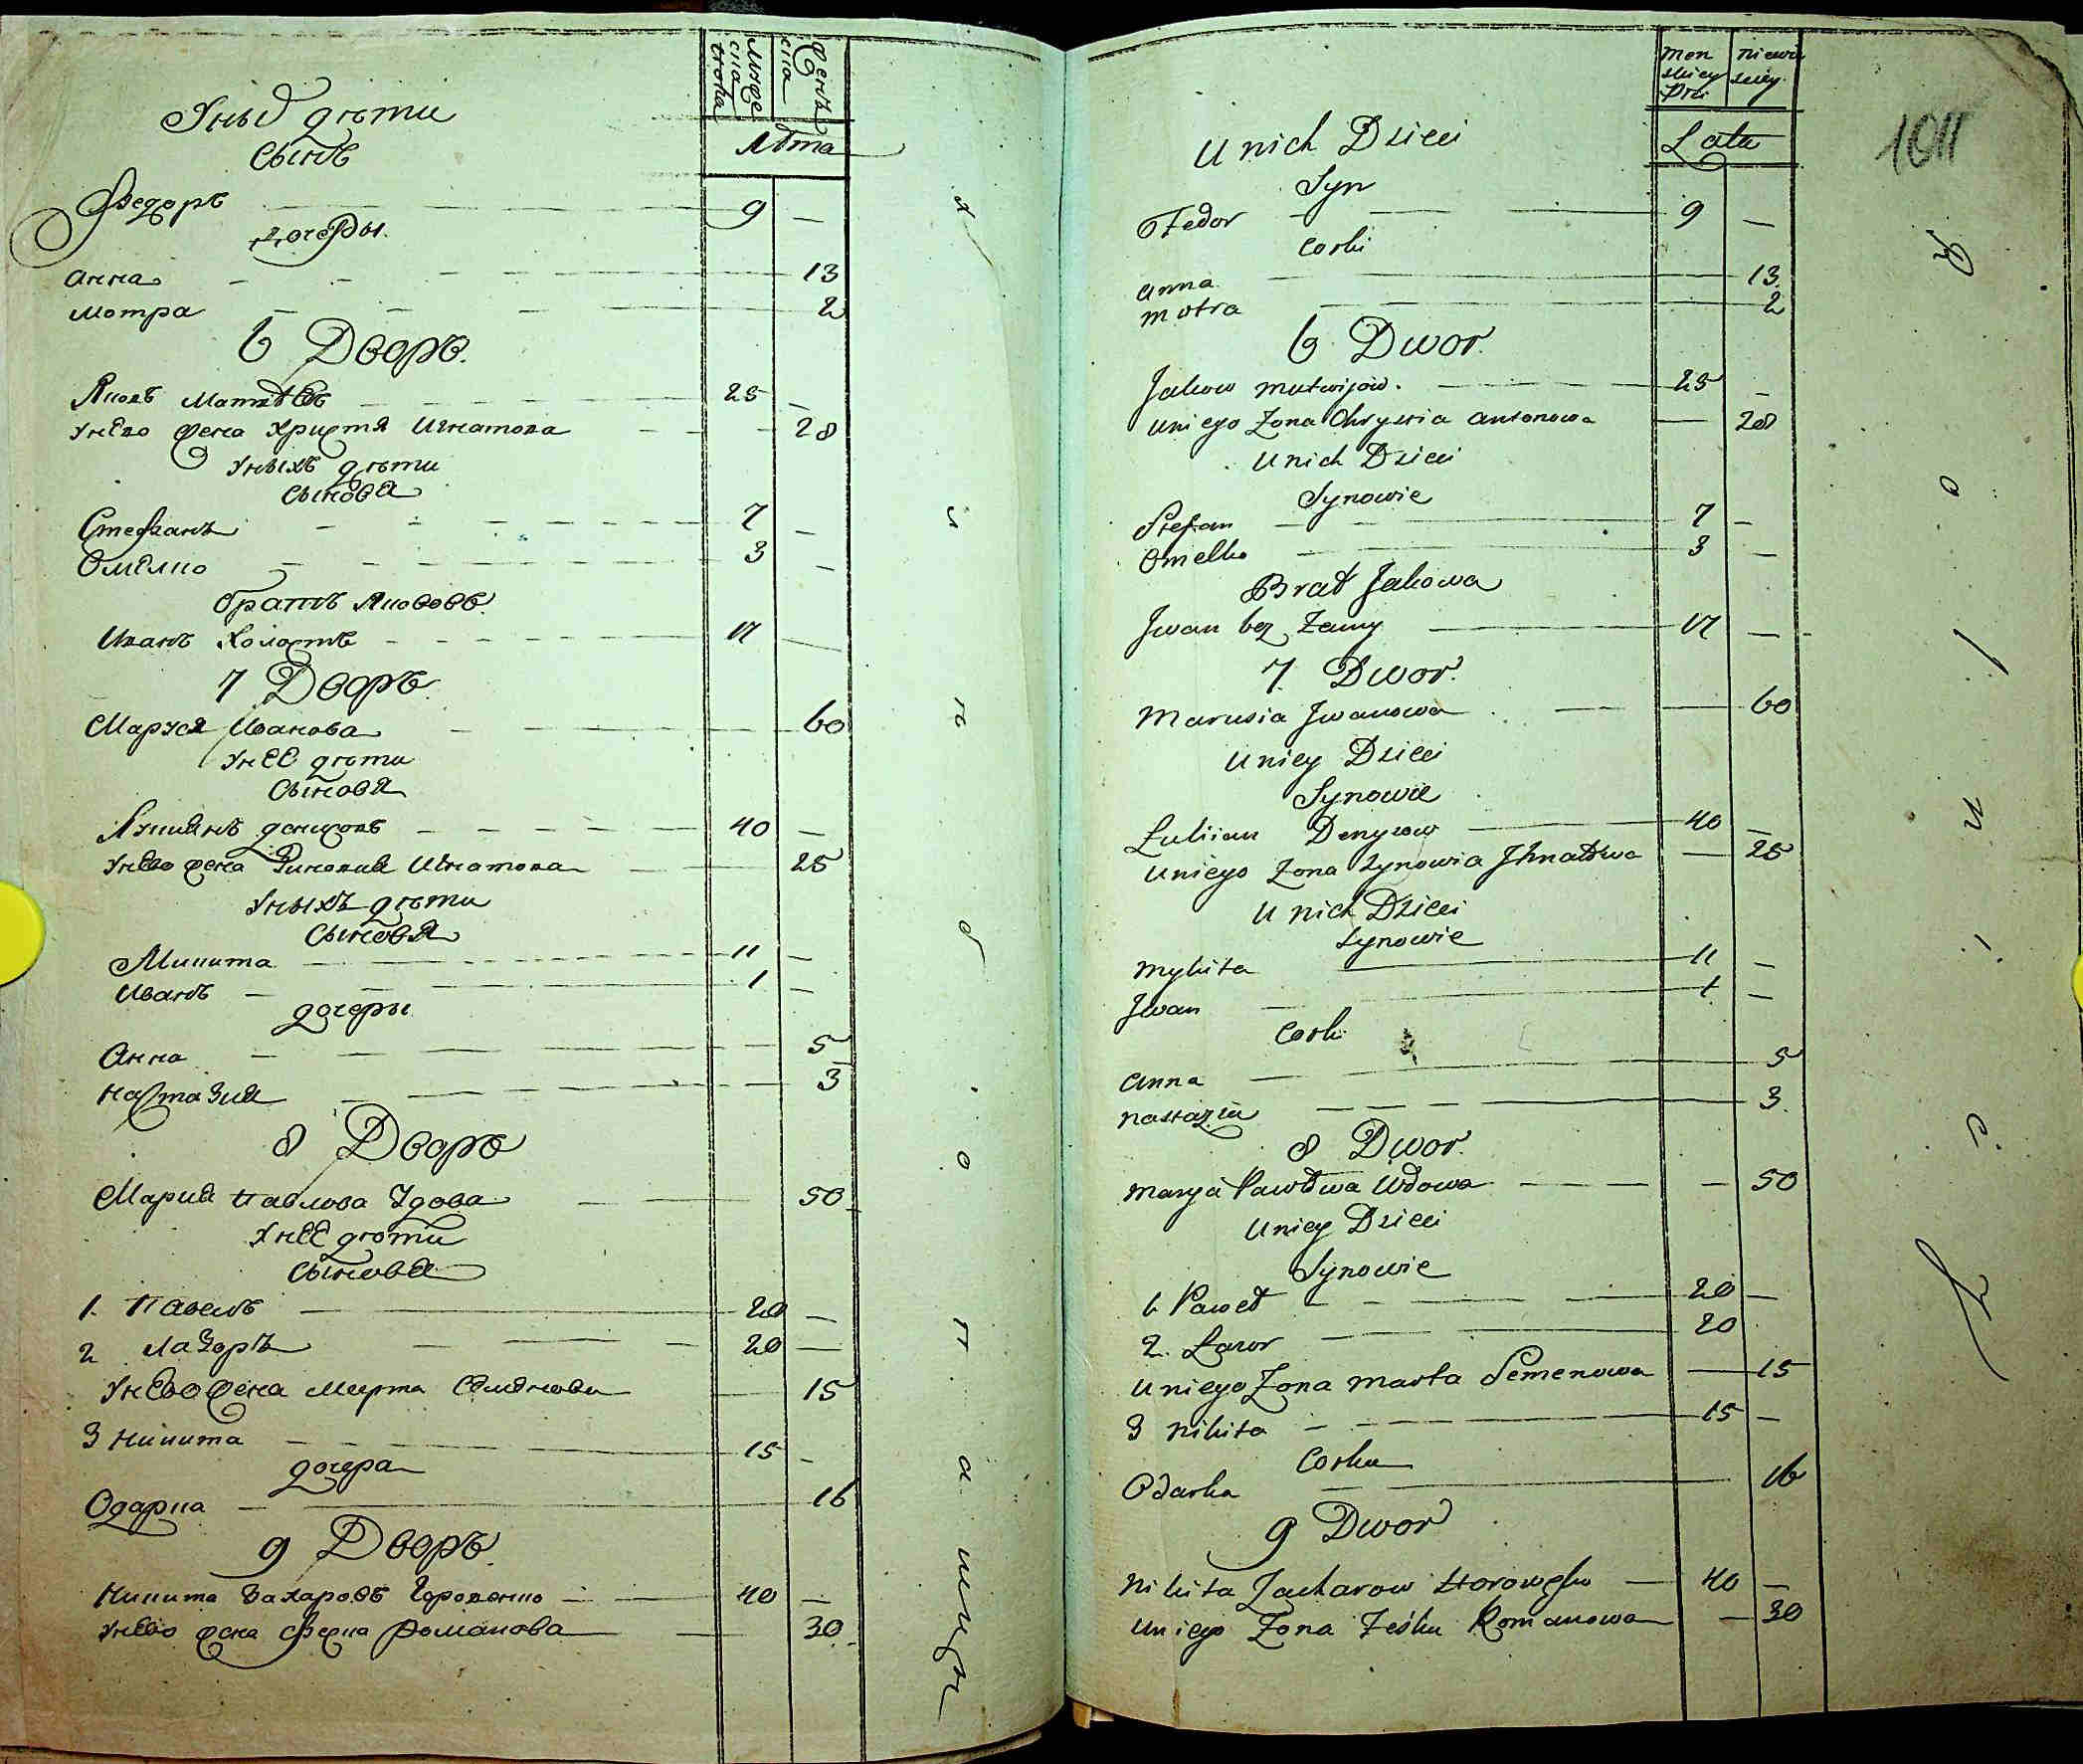 Мужеска полу
Женска
Лѣта
У ных дѣти
Сынъ
Федоръ 9 —
дочеры
Анна 13
Мотра 2
6 Дворъ.
Яковъ Матвѣевъ 25 —
У него жена Христя Игнатова 28
У ныхъ дѣти
Сыновя
Стефанъ 7 —
Омелко 3 —
Братъ Якововъ
Иванъ Холостъ 17 —
7 Дворъ.
Маруся Иванова 60
У неє дѣти
Сыновя
Лукиянъ Денисовъ 40 —
У него жена Зиновия Игнатова 25
У ныхъ дѣти
Сыновя
Микита 11 —
Иванъ 1 —
дочеры
Анна 5
Настазия 3
8 Дворъ
Мария Павлова Удова 50
У неє дѣти
Сыновя
1. Павелъ 20 —
2 Лазоръ 20 —
У него жена Марта Семенова 15
3 Никита 15 —
дочера
Одарка 16
9 Дворъ.
Никита Захаровъ 40 —
У него жена Романова 30
Lata
1011
U nich Dzieci
Syn
Fedor 9 —
Corki
Anna 13
Motra 2
6 Dwor.
Jakow Matwijow. 25 —
U niego Zona Chrystia 28
U nich Dzieci
Synowie
Stefan 7 —
Omelko 3 —
Brat Jakowa
Jwan bez Zenny 17 —
7. Dwor.
Marusia Jwanowa 60
U niey Dzieci
Synowie
Łukiian Denysow 40 —
U niego Zona Zynowia Jhnatowa 25
U nich Dzieci
Synowie
Mykita 11 —
Jwan 1 —
Corki
Anna 5
Nastazia 3.
8 Dwor.
Marya Pawłowa Wdowa 50
U niey Dzieci
Synowie
1. Paweł 20 —
2. Łazor 20
U niego Zona Marta Semenowa 15
3 Nikita 15 —
Corka
Odarka 16
9 Dwor
Nikita Zacharow 40 —
U niego Zona Romanowa 30